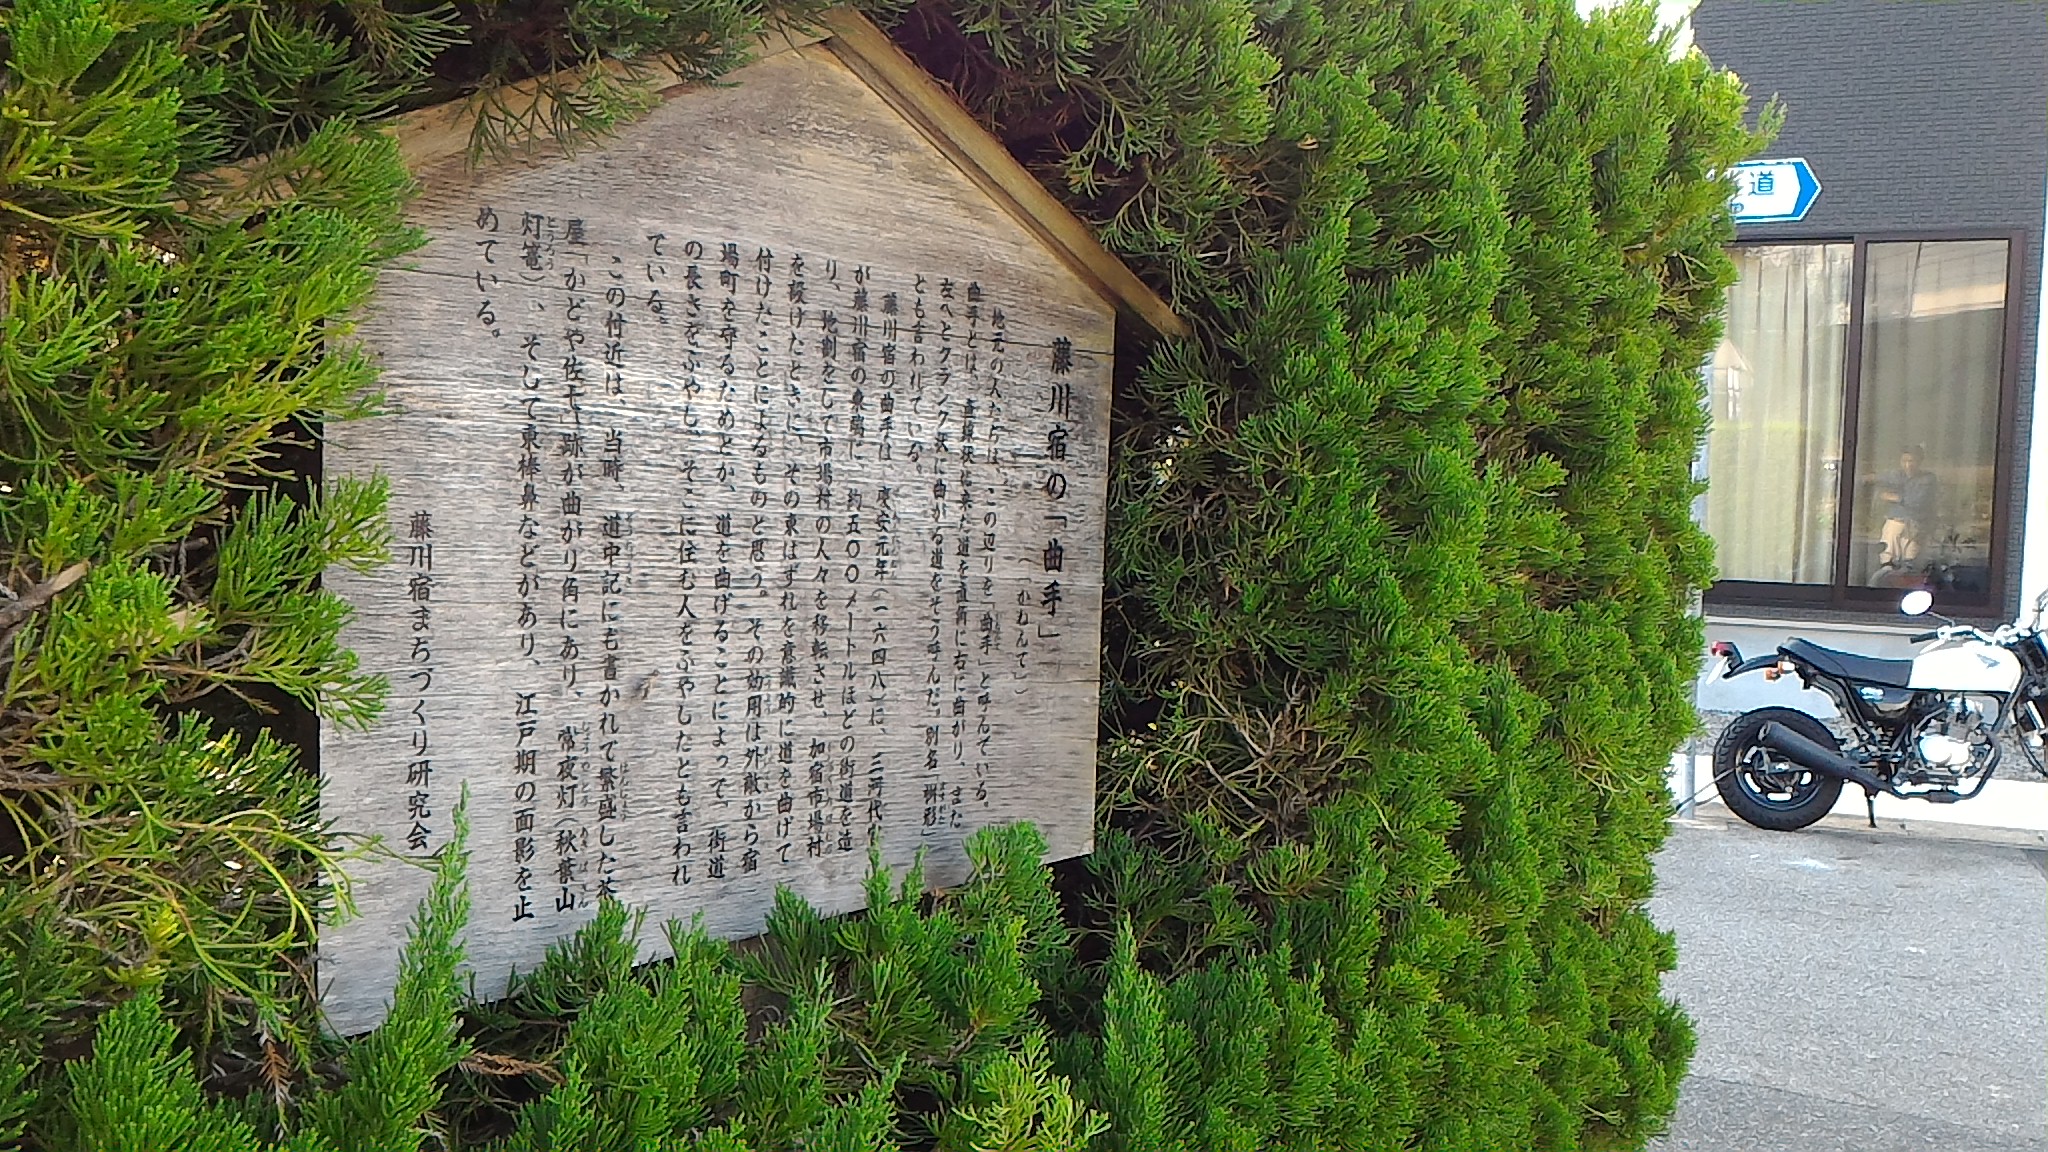 藤川宿の「曲手」
(「かねんて」)
地元の人たちは、この辺りを「曲手」と呼んでいる。
曲手とは、直線状に来た道を直角に右に曲がり、また
左へとクランク状に曲がる道をそう呼んだ。別名「桝形」
とも言われている。
藤川宿の曲手は、慶安元年(一六四八)に、三河代官
が藤川宿の東端に、約五〇〇メートルほどの街道を造
り、地割をして市場村の人々を移転させ、加宿市場村
を設けたときに、その東はずれを意識的に道を曲げて
付けたことによるものと思う。その効用は外敵から宿
場町を守るためとか、道を曲げることによって、街道
の長さをふやし、そこに住む人をふやしたとも言われ
ている。
この付近は、当時、道中記にも書かれて繁盛した茶
屋「かどや佐七」跡が曲がり角にあり、常夜灯(秋葉山
灯篭)、そして東棒鼻などがあり、江戸期の面影を止
めている。
藤川宿まちづくり研究会
道